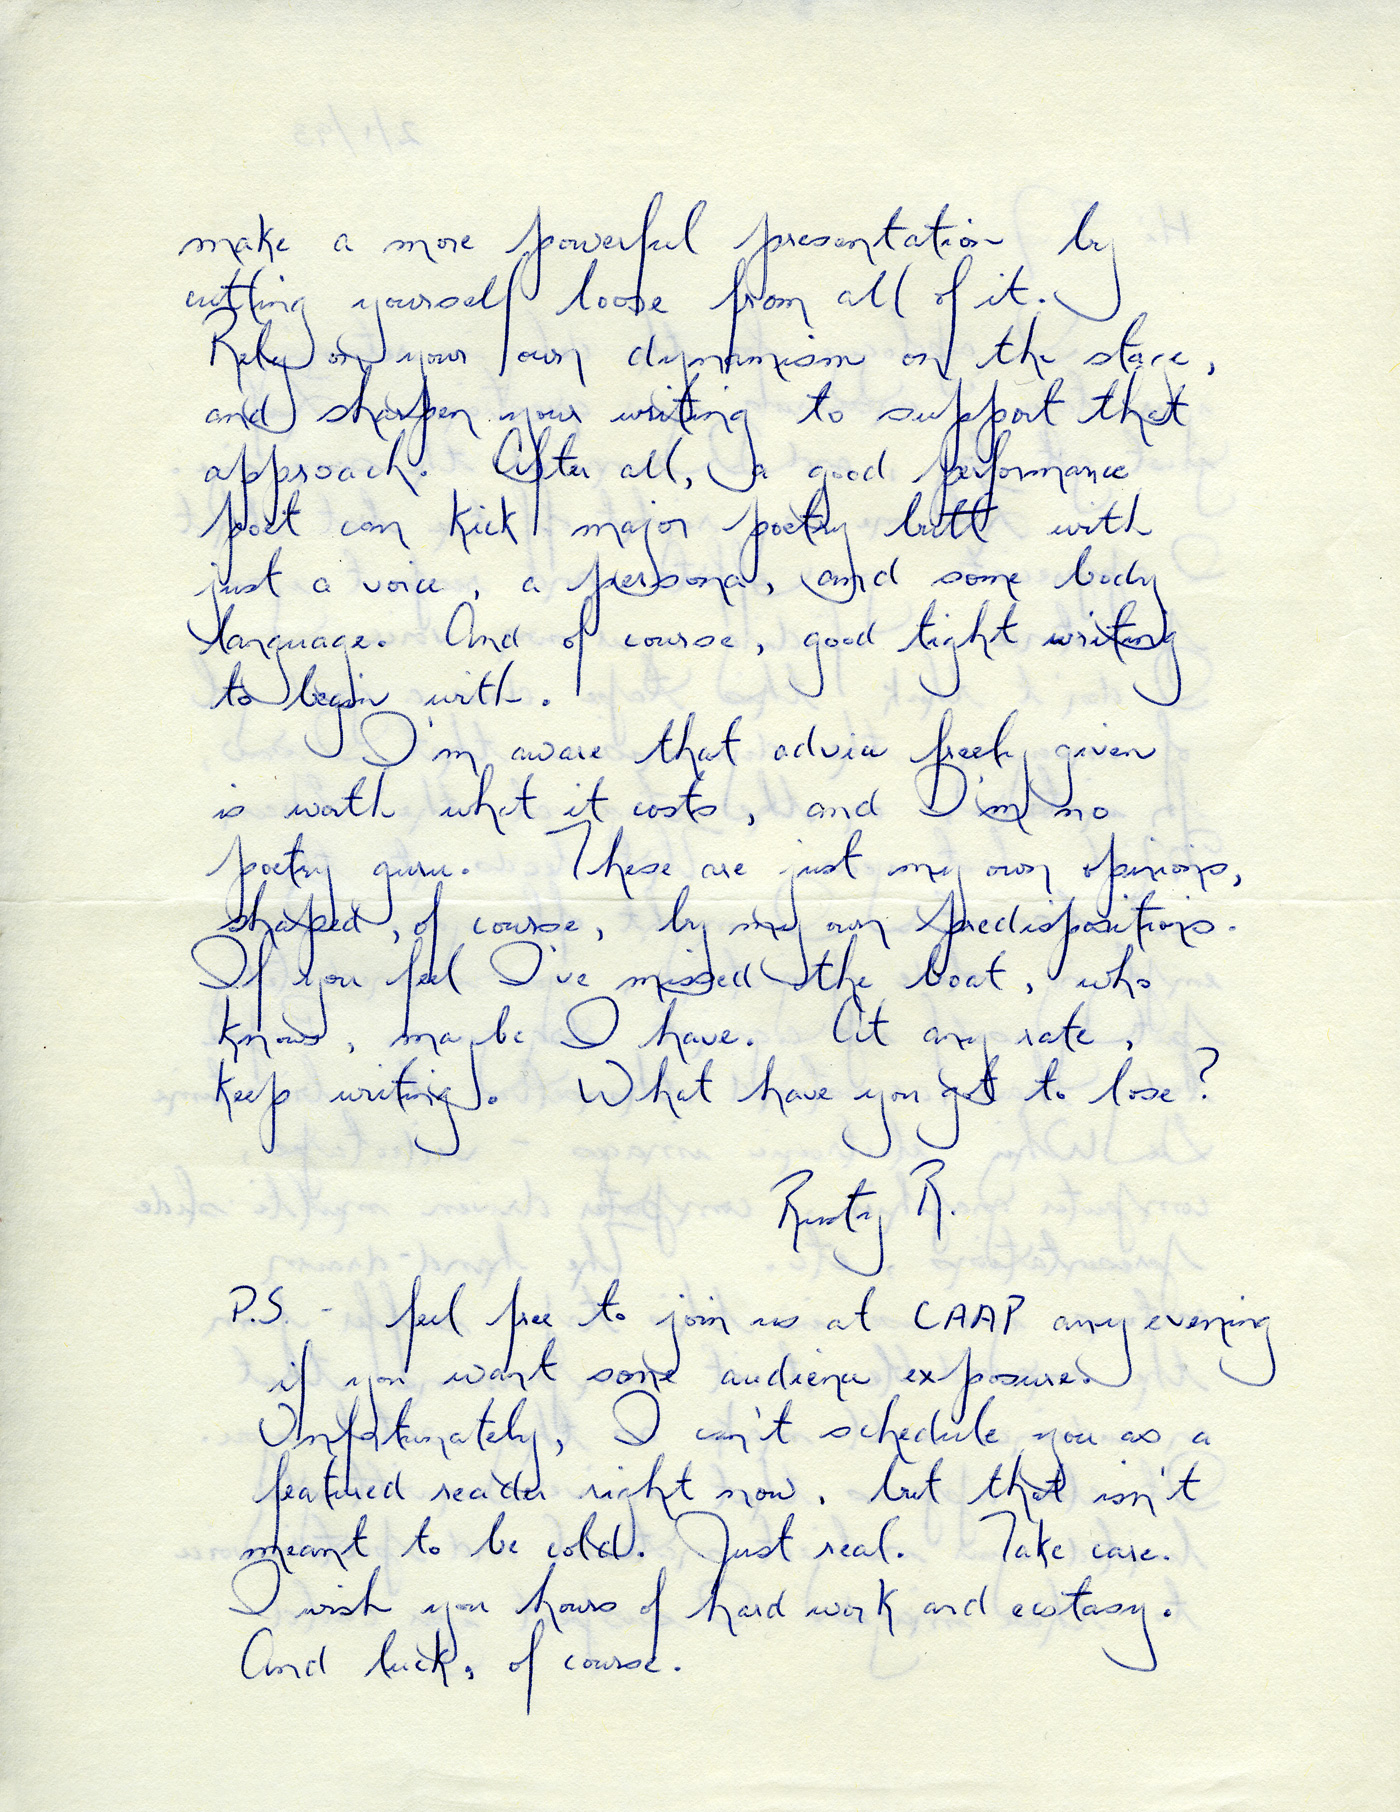 make a more powerful presentation by
cutting yourself loose from all of it.
Rely on your own dynamism on the stage,
and sharpen your writing to support that
approach. After all, a good performance
poet can kick major poetry butt with
just a voice, a persona, and some body
language. And of course, good tight writing
to begin with.
I'm aware that advice freely given
is worth what it costs, and I'm no
poetry guru. These are just my own opinions,
shaped, of course, by my own predispositions.
If you feel I've missed the boat, who
knows, maybe I have. At any rate,
keep writing. What have you got to lose?
Rusty R.
P.S. - feel free to join us at CAAP any evening
if you want some audience exposure.
Unfortunately, I can't schedule you as a
featured reader right now, but that isn't
meant to be cold. Just real. Take care.
I wish you hours of hard work and ecstasy.
And luck, of course.